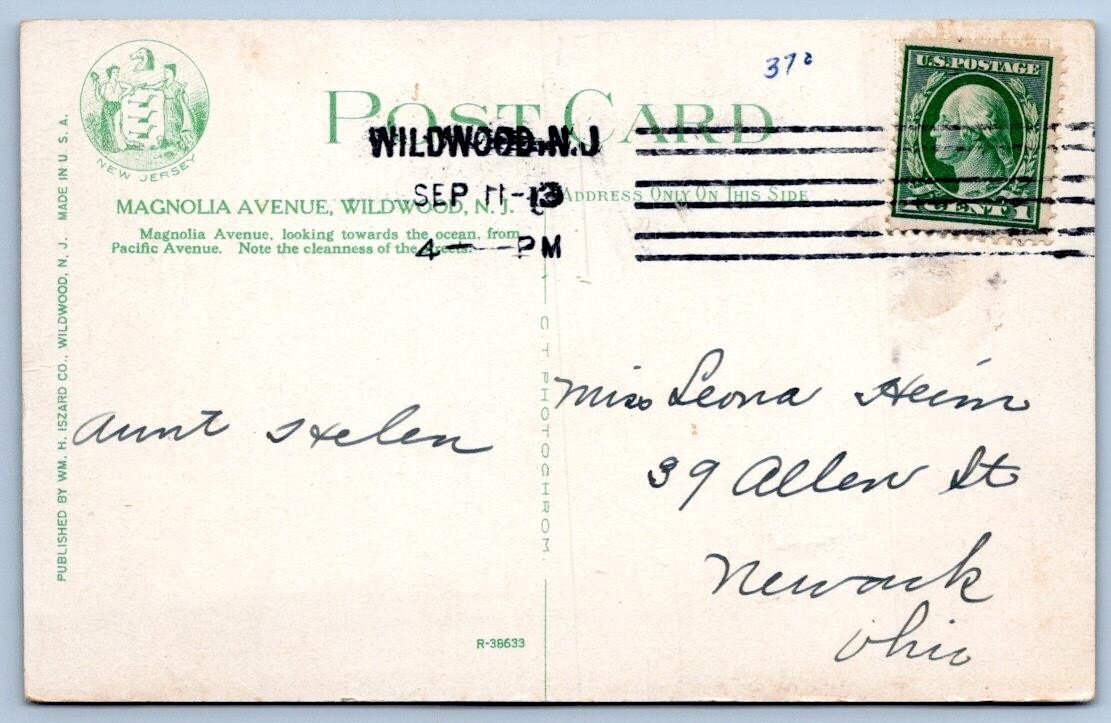 NEW JERSEY
POST CARD
372
U.S. POSTAGE
CENT 1
WILDWOOD, N.J
SEP 11-13
4 — PM
ADDRESS ONLY ON THIS SIDE
MAGNOLIA AVENUE, WILDWOOD, N. J.
Magnolia Avenue, looking towards the ocean, from
Pacific Avenue. Note the cleanness of the streets.
PUBLISHED BY WM. H. ISZARD CO., WILDWOOD, N. J. MADE IN U. S. A.
C T PHOTOCHROM
Aunt Helen
Miss Leona Heim
39 Allen St
Newark
Ohio
R-38633